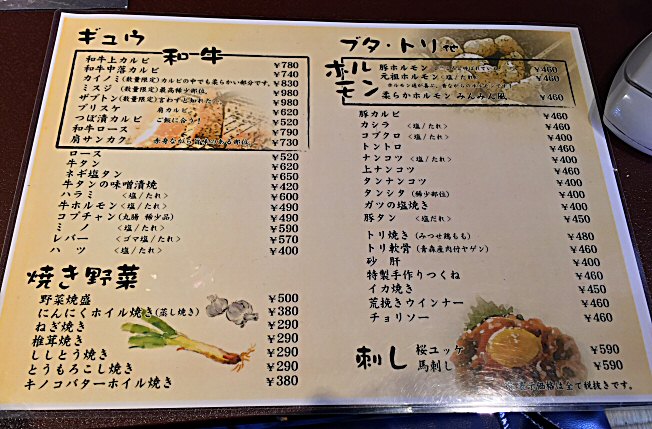 ギュウ
和牛
和牛上カルビ ¥780
和牛中落カルビ ¥740
カイノミ(数量限定)カルビの中でも柔らかい部分です。 ¥830
ミスジ(数量限定)最高稀少部位 ¥980
ザブトン(数量限定)言わずと知れた… ¥980
ブリスケ 肩カルビ ¥620
つぼ漬カルビ ご飯に合う! ¥520
和牛ロース ¥790
肩サンカク ¥730
ロース ¥520
牛タン ¥620
ネギ塩タン ¥650
牛タンの味噌漬焼 ¥420
ハラミ <塩/たれ> ¥600
牛ホルモン <塩/たれ> ¥490
コプチャン(丸腸 稀少品) ¥490
ミノ <塩/たれ> ¥590
レバー <ゴマ塩/たれ> ¥570
ハツ <塩/たれ> ¥400
焼き野菜
野菜焼盛 ¥500
にんにくホイル焼き(蒸し焼き) ¥380
ねぎ焼き ¥290
椎茸焼き ¥290
ししとう焼き ¥290
とうもろこし焼き ¥290
キノコバターホイル焼き ¥380
ブタ・トリ他
ホルモン
豚ホルモン ¥460
元祖ホルモン<塩/たれ> ¥460
柔らかホルモン みんみん風 ¥460
豚カルビ ¥460
カシラ <塩/たれ> ¥460
コブクロ <塩/たれ> ¥400
トントロ ¥460
ナンコツ <塩/たれ> ¥400
上ナンコツ ¥460
タンナンコツ ¥460
タンシタ (稀少部位) ¥400
ガツの塩焼き ¥460
豚タン <塩だれ> ¥450
トリ焼き (みつせ鶏もも) ¥480
トリ軟骨 (青森産肉付ヤゲン) ¥460
砂肝 ¥400
特製手作りつくね ¥460
イカ焼き ¥450
荒挽きウインナー ¥460
チョリソー ¥460
刺し
桜ユッケ ¥590
馬刺し ¥590
※表示価格は全て税抜きです。